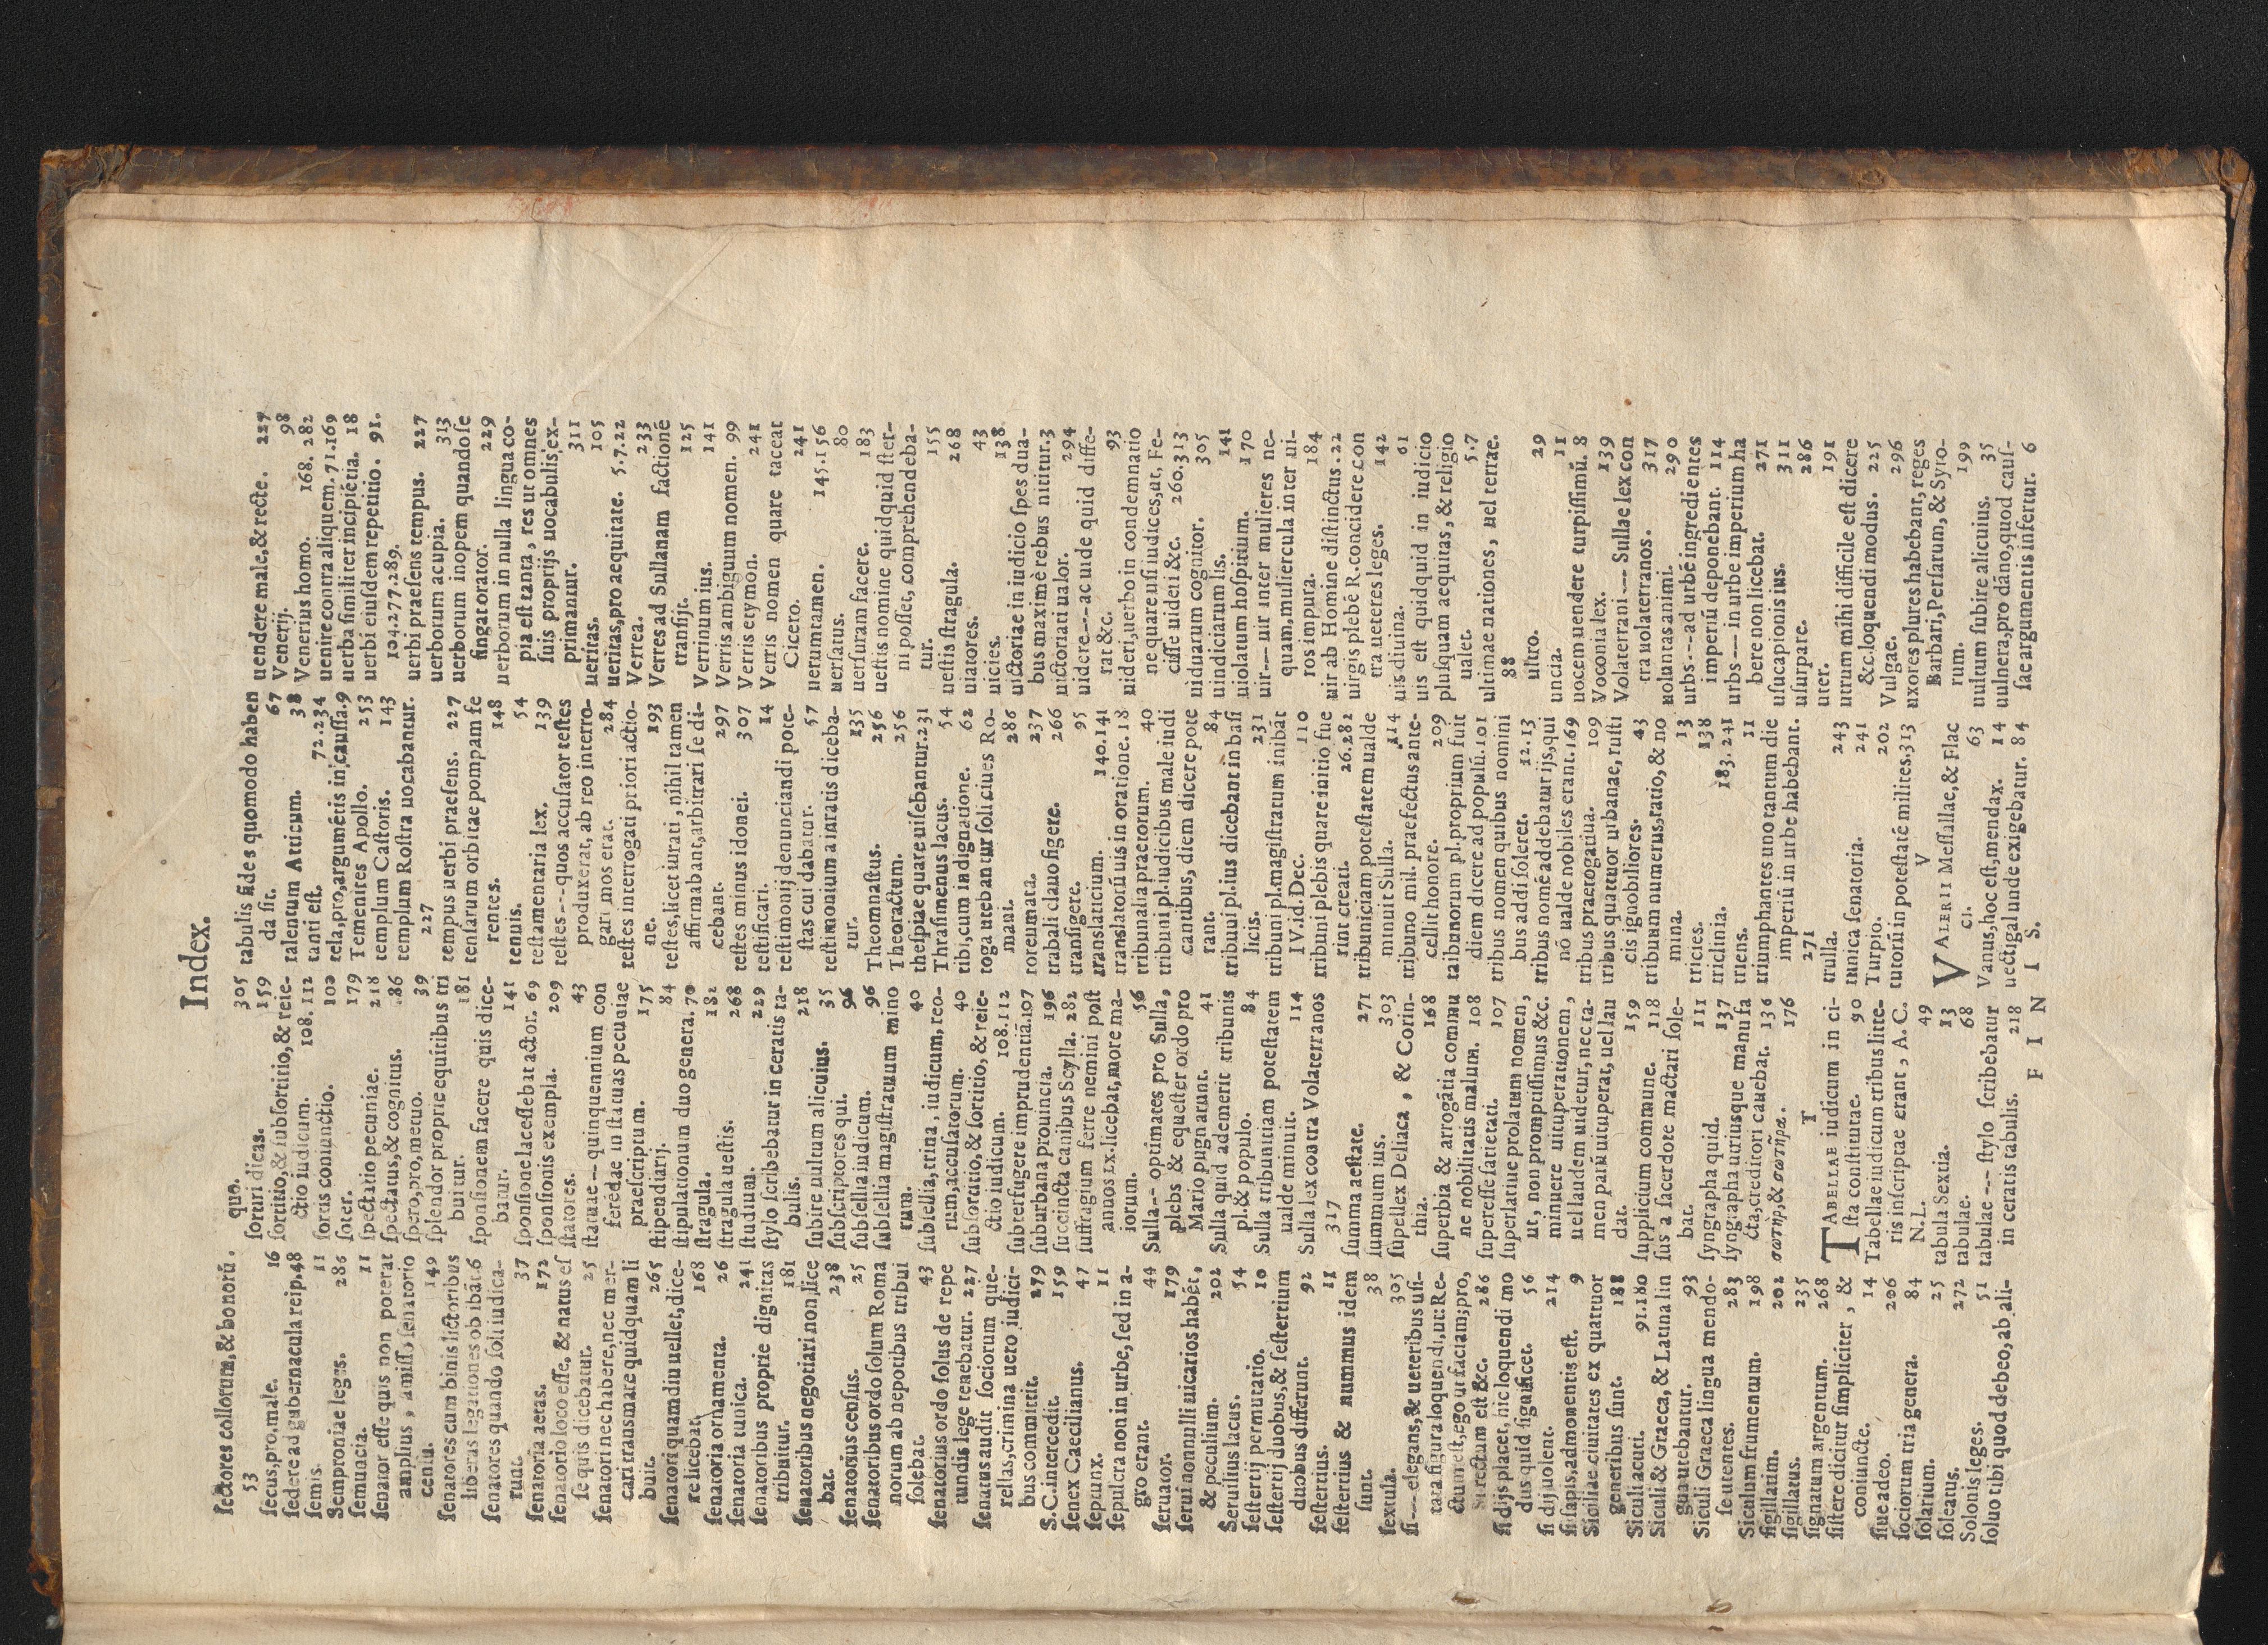 Index.
ſectores collorum, & bonorũ.
53
ſecus, pro, male. 16
ſedere ad gubernacula reip. 48
ſemis. 11
Semproniae leges. 286
ſemuncia. 11
ſenator eſſe quis non poterat
amplius, amiſſo ſenatorio
cenſu. 149
ſenatores cum binis lictoribus
liberas legationes obibãt. 6
ſenatores quando ſoli iudica-
runt. 37
ſenatoria aetas. 172
ſenatorio loco eſſe, & natus eſ
ſe quis dicebatur. 25
ſenatori nec habere, nec mer-
cari trans mare quidquam li
buit. 265
ſenatori quamdiu uellet, dice-
re licebat. 168
ſenatoria ornamenta. 26
ſenatoria tunica. 241
ſenatoribus proprie dignitas
tribuitur. 181
ſenatoribus negotiari non lice
bat. 238
ſenatorius cenſus. 25
ſenatoribus ordo ſolum Roma
norum ab nepotibus tribui
ſolebat. 43
ſenatorius ordo ſolus de repe
tundis lege teaebatur. 227
ſenatus audit ſociorum que-
rellas, crimina uero iudici-
bus committit. 279
S.C. intercedit. 159
ſenex Caecilianus. 47
ſepunx. 11
ſepulcra non in urbe, ſed in a-
gro erant. 44
ſeruator. 179
ſerui nonnulli uicarios habẽt,
& peculium. 202
Seruilius lacus. 54
ſeſtertij permutatio. 10
ſeſtertij duobus, & ſeſtertium
duobus differunt. 92
ſeſtertius. 11
ſeſtertius & nummus idem
ſunt. 38
ſextula. 305
ſi---elegans, & ueteribus uſi-
tata figura loquendi, ut: Re-
ctum eſt, ego ut faciam; pro,
Si rectum eſt &c. 286
ſi dijs placet, hic loquendi mo
dus quid ſignificet. 56
ſi dij uolent. 214
ſi ſapis, admonentis eſt. 9
Siciliae ciuitates ex quattuor
generibus ſunt. 188
Siculi acuti. 91.180
Siculi & Graeca, & Latina lin
gua utebantur. 93
Siculi Graeca lingua mendo-
ſe utentes. 283
Siculum frumentum. 198
ſigillatim. 202
ſigillatus. 235
ſignatum argentum. 268
ſiſtere dicitur ſimpliciter, &
coniuncte. 14
ſiue adeo. 206
ſociorum tria genera. 84
ſolarium. 25
ſoleatus. 272
Solonis leges. 51
ſoluo tibi quod debeo, ab ali-
quo. 305
ſoturi dicas. 159
ſortitio, & ſubſortitio, & reie-
ctio iudicum. 108.112
ſortis coniunctio. 100
ſoter. 179
ſpectatio pecuniae. 218
ſpectatus, & cognitus. 86
ſpero, pro, metuo. 39
ſplendor proprie equitibus tri
buitur. 181
ſponſionem facere quis dice-
batur. 141
ſponſione laceſſebat actor. 69
ſponſionis exempla. 209
ſtatores. 43
ſtatuae---quinquennium con
ferẽdae in ſtatuas pecuniae
praeſcriptum. 175
ſtipendiarij. 84
ſtipulationum duo genera. 70
ſtragula. 182
ſtragula ueſtis. 268
ſtudium. 229
ſtylo ſcribebatur in ceratis ta-
bulis. 218
ſubire uultum alicuius. 35
ſubſcriptores qui. 96
ſubſellia iudicum. 96
ſubſellia magiſtratuum mino
rum. 40
ſubſellia, trina, iudicum, reo-
rum, accuſatorum. 40
ſubſortitio, & ſortitio, & reie-
ctio iudicum. 108.112
ſubterfugere imprudentiã. 107
ſuburbana prouincia. 196
ſuccincta canibus Scylla. 282
ſuffragium ferre nemini poſt
annos LX. licebat, more ma-
iorum. 56
Sulla---optimates pro Sulla,
plebs & equeſter ordo pro
Mario pugnarunt. 41
Sulla quid ademerit tribunis
pl. & populo. 84
Sulla tribunitiam poteſtatem
ualde minuit. 114
Sulla lex contra Volaterranos
317
ſumma aeſtate. 271
ſummum ius. 303
ſupellex Deliaca, & Corin-
thia. 168
ſuperbia & arrogãtia commu
ne nobilitatis malum. 108
ſupereſſe ſatietati. 107
ſuperlatiue prolatum nomen,
ut, non promptiſſimus &c.
minuere uituperationem,
uel laudem uidetur, nec ta-
men parũ uituperat, uel lau
dat. 159
ſupplicium commune. 118
ſus a ſacerdote mactari ſole-
bat. 111
ſyngrapha quid. 137
ſyngrapha utriusque manu fa
cta, creditori cauebat. 136
σωτὴρ, & σωτῆρα. 176
T
TABELLAE iudicum in ci-
ſta conſtitutae. 90
Tabellae iudicum tribus litte-
ris inſcriptae erant, A.C.
N.L. 49
tabula Sextia. 13
tabulae. 68
tabulae---ſtylo ſcribebatur
in ceratis tabulis. 218
tabulis fides quomodo haben
da ſit. 67
talentum Atticum. 38
tanti eſt. 72.234
tela, pro, argumẽtis in cauſſa. 9
Temenites Apollo. 253
templum Caſtoris. 143
templum Roſtra uocabantur.
227
tempus uerbi praeſens. 227
tenſarum orbitae pompam fe
rentes. 148
tenuis. 54
teſtamentaria lex. 139
teſtes---quos accuſator teſtes
produxerat, ab reo interro-
gari mos erat. 284
teſtes interrogati priori actio-
ne. 193
teſtes, licet iurati, nihil tamen
affirmabant, arbitrari ſe di-
cebant. 297
teſtes minus idonei. 307
teſtificari. 14
teſtimonij denunciandi pote-
ſtas cui dabatur. 57
teſtimonium a iuratis diceba-
tur. 135
Theomnaſtus. 256
Theoractum. 256
theſpiae quare uiſebantur. 231
Thraſimenus lacus. 54
tibi, cum indignatione. 62
toga utebantur ſoli ciues Ro-
mani. 286
toreumata. 237
trabali clauo figere. 266
tranſigere. 95
translaticium. 140.141
translatorũ uis in oratione. 18
tribunalia praetorum. 40
tribuni pl. iudicibus male iudi
cantibus, diem dicere pote
rant. 84
tribuni pl. ius dicebant in baſi
licis. 231
tribuni pl. magiſtratum inibãt
IV. id. Dec. 110
tribuni plebis quare initio fue
rint creati. 26.282
tribuniciam poteſtatem ualde
minuit Sulla. 114
tribuno mil. praefectus ante-
cellit honore. 209
tribunorum pl. proprium fuit
diem dicere ad populũ. 101
tribus nomen quibus nomini
bus addi ſoleret. 12.13
tribus nomẽ addebatur ijs, qui
nõ ualde nobiles erant. 169
tribus praerogatiua. 109
tribus quattuor urbanae, ruſti
cis ignobiliores. 43
tribuum numerus, ratio, & no
mina. 13
tricies. 138
triclinia. 183.241
triens. 11
triumphantes uno tantum die
imperiũ in urbe habebant.
271
trulla. 243
tunica ſenatoria. 241
Turpio. 202
tutorũ in poteſtatẽ milites. 313
V
VALERII Meſſallae, & Flac
ci. 63
Vanus, hoc eſt, mendax. 14
uectigal unde exigebatur. 84
uendere male, & recte. 227
Venerij. 98
Venerius homo. 168.282
uenire contra aliquem. 71.169
uerba ſimiliter incipiẽtia. 18
uerbi eiuſdem repetitio. 91.
104.277.289.
uerbi praeſens tempus. 227
uerborum acupia. 313
uerborum inopem quando ſe
fingat orator. 229
uerborum in nulla lingua co-
pia eſt tanta, res ut omnes
ſuis proprijs uocabulis ex-
primantur. 311
ueritas. 105
ueritas, pro aequitate. 5.7.22
Verrea. 233
Verres ad Sullanam factionẽ
tranſijt. 125
Verrinum ius. 141
Verris ambiguum nomen. 99
Verris etymon. 241
Verris nomen quare taceat
Cicero. 241
uerumtamen. 145.156
uerſatus. 80
uerſuram facere. 183
ueſtis nomine quidquid ſter-
ni poſſet, comprehendeba-
tur. 155
ueſtis ſtragula. 268
uiatores. 43
uicies. 138
uictoriae in iudicio ſpes dua-
bus maximè rebus nititur. 3
uictoriati ualor. 294
uidere---ac uide quid diffe-
rat &c. 93
uideri, uerbo in condemnatio
ne quare uſi iudices, ut, Fe-
ciſſe uideri &c. 260.313
uiduarum cognitor. 305
uindiciarum lis. 141
uiolatum hoſpitium. 170
uir---uir inter mulieres ne-
quam, muliercula inter ui-
ros impura. 184
uir ab Homine diſtinctus. 22
uirgis plebẽ R. concidere con
tra ueteres leges. 142
uis diuina. 61
uis eſt quidquid in iudicio
pluſquam aequitas, & religio
ualet. 5.7
ultimae nationes, uel terrae.
88
ultro. 29
uncia. 11
uocem uendere turpiſſimũ. 8
Voconia lex. 139
Volaterrani---Sullae lex con
tra uolaterranos. 317
uoluntas animi. 290
urbs---ad urbẽ ingredientes
imperiũ deponebant. 114
urbs---in urbe imperium ha
bere non licebat. 271
uſucapionis ius. 311
uſurpare. 286
uter. 191
utrum mihi difficile eſt dicere
&c. loquendi modus. 225
Vulgae. 296
uxores plures habebant, reges
Barbari, Perſarum, & Syro-
rum. 199
uultum ſubire alicuius. 35
uulnera, pro dãno, quod cauſ-
ſae argumentis infertur. 6
F I N I S.